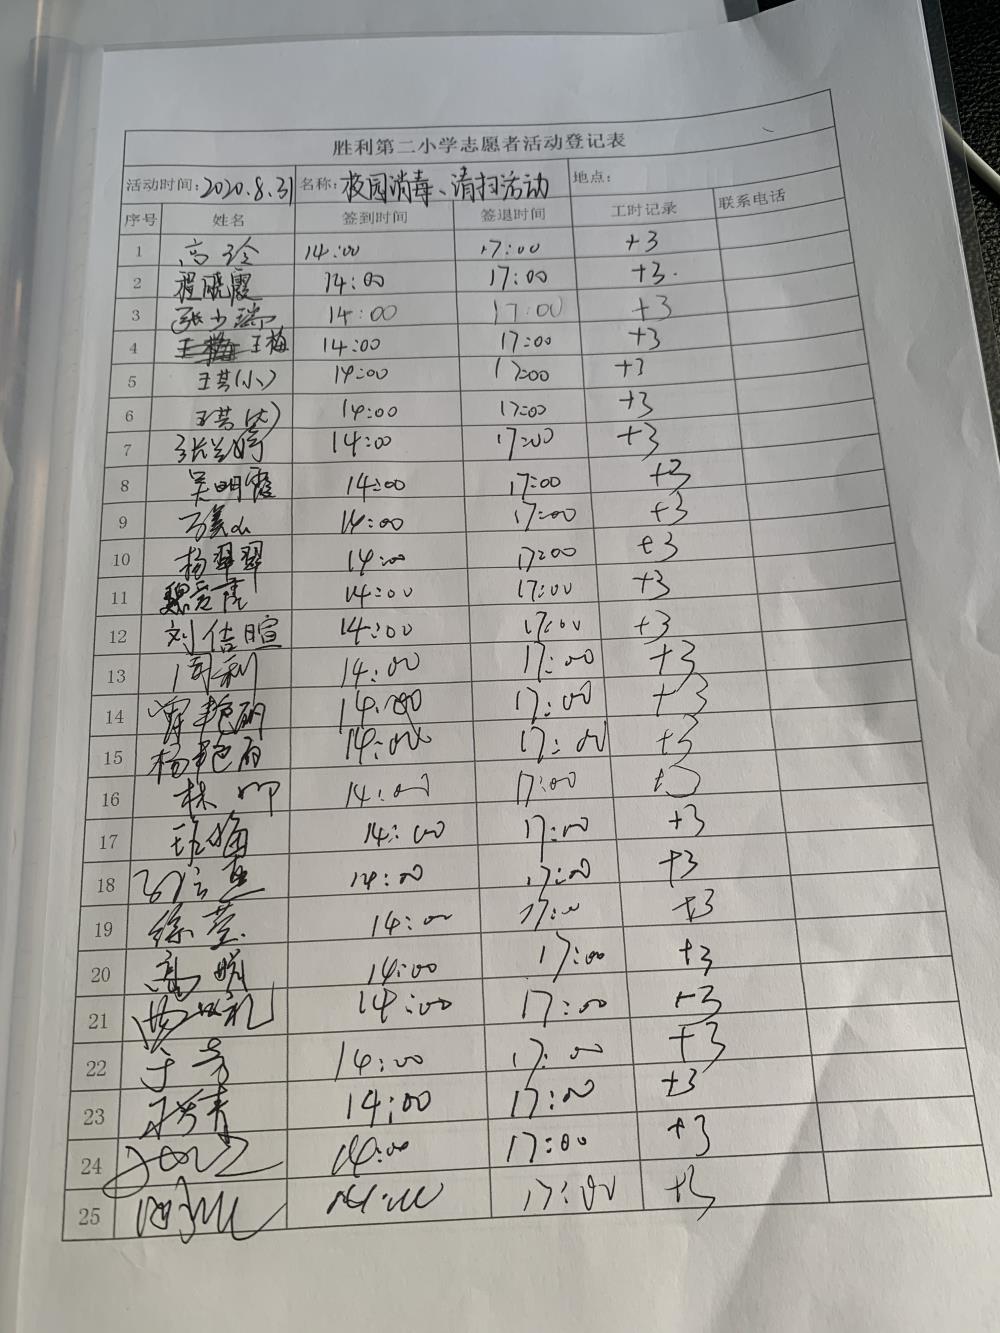 胜利第二小学志愿者活动登记表
活动时间:2020.8.31 名称:校园消毒、清扫活动 地点:
序号 姓名 签到时间 签退时间 工时记录 联系电话
1 高玲 14:00 17:00 +3
2 程晓霞 14:00 17:00 +3.
3 张少瑞 14:00 17:00 +3
4 王梅 王梅 14:00 17:00 +3
5 王芸(小) 14:00 17:00 +3
6 14:00 17:00 +3
7 14:00 17:00 +3
8 吴明霞 14:00 17:00 +3
9 14:00 17:00 +3
10 杨翠翠 14:00 17:00 +3
11 14:00 17:00 +3
12 刘佶暄 14:00 17:00 +3
13 周利 14:00 17:00 +3
14 14:00 17:00 +3
15 杨艳丽 14:00 17:00 +3
16 林 14:00 17:00 +3
17 14:00 17:00 +3
18 14:00 17:00 +3
19 徐 14:00 17:00 +3
20 高 14:00 17:00 +3
21 14:00 17:00 +3
22 于芳 14:00 17:00 +3
23 14:00 17:00 +3
24 14:00 17:00 +3
25 14:00 17:00 +3